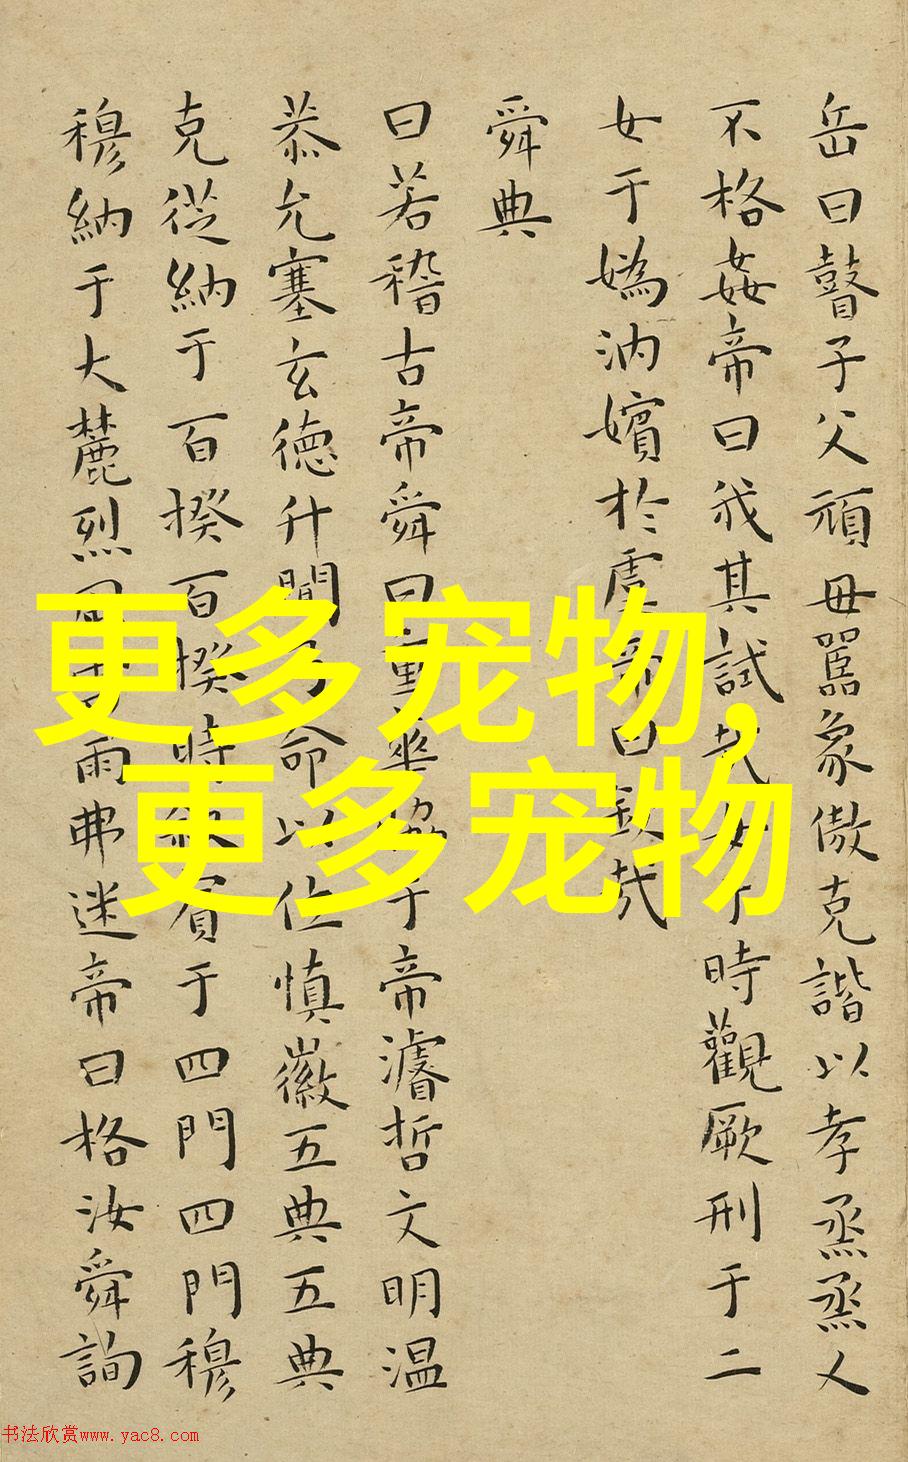 岳曰瞽子父頑毋嚚象傲克諧以孝烝烝乂
不格姦帝曰我其試哉女于時觀厥刑于二
女于媯汭嬪於虞帝曰欽哉
舜典
曰若稽古帝舜曰重華協于帝濬哲文明温
恭允塞玄德升聞乃命以位慎徽五典五典
克從納于百揆百揆時敘賓于四門四門穆
穆納于大麓烈風雷雨弗迷帝曰格汝舜詢
更多宠物,
更多宠物
书法欣赏www.yac8.com